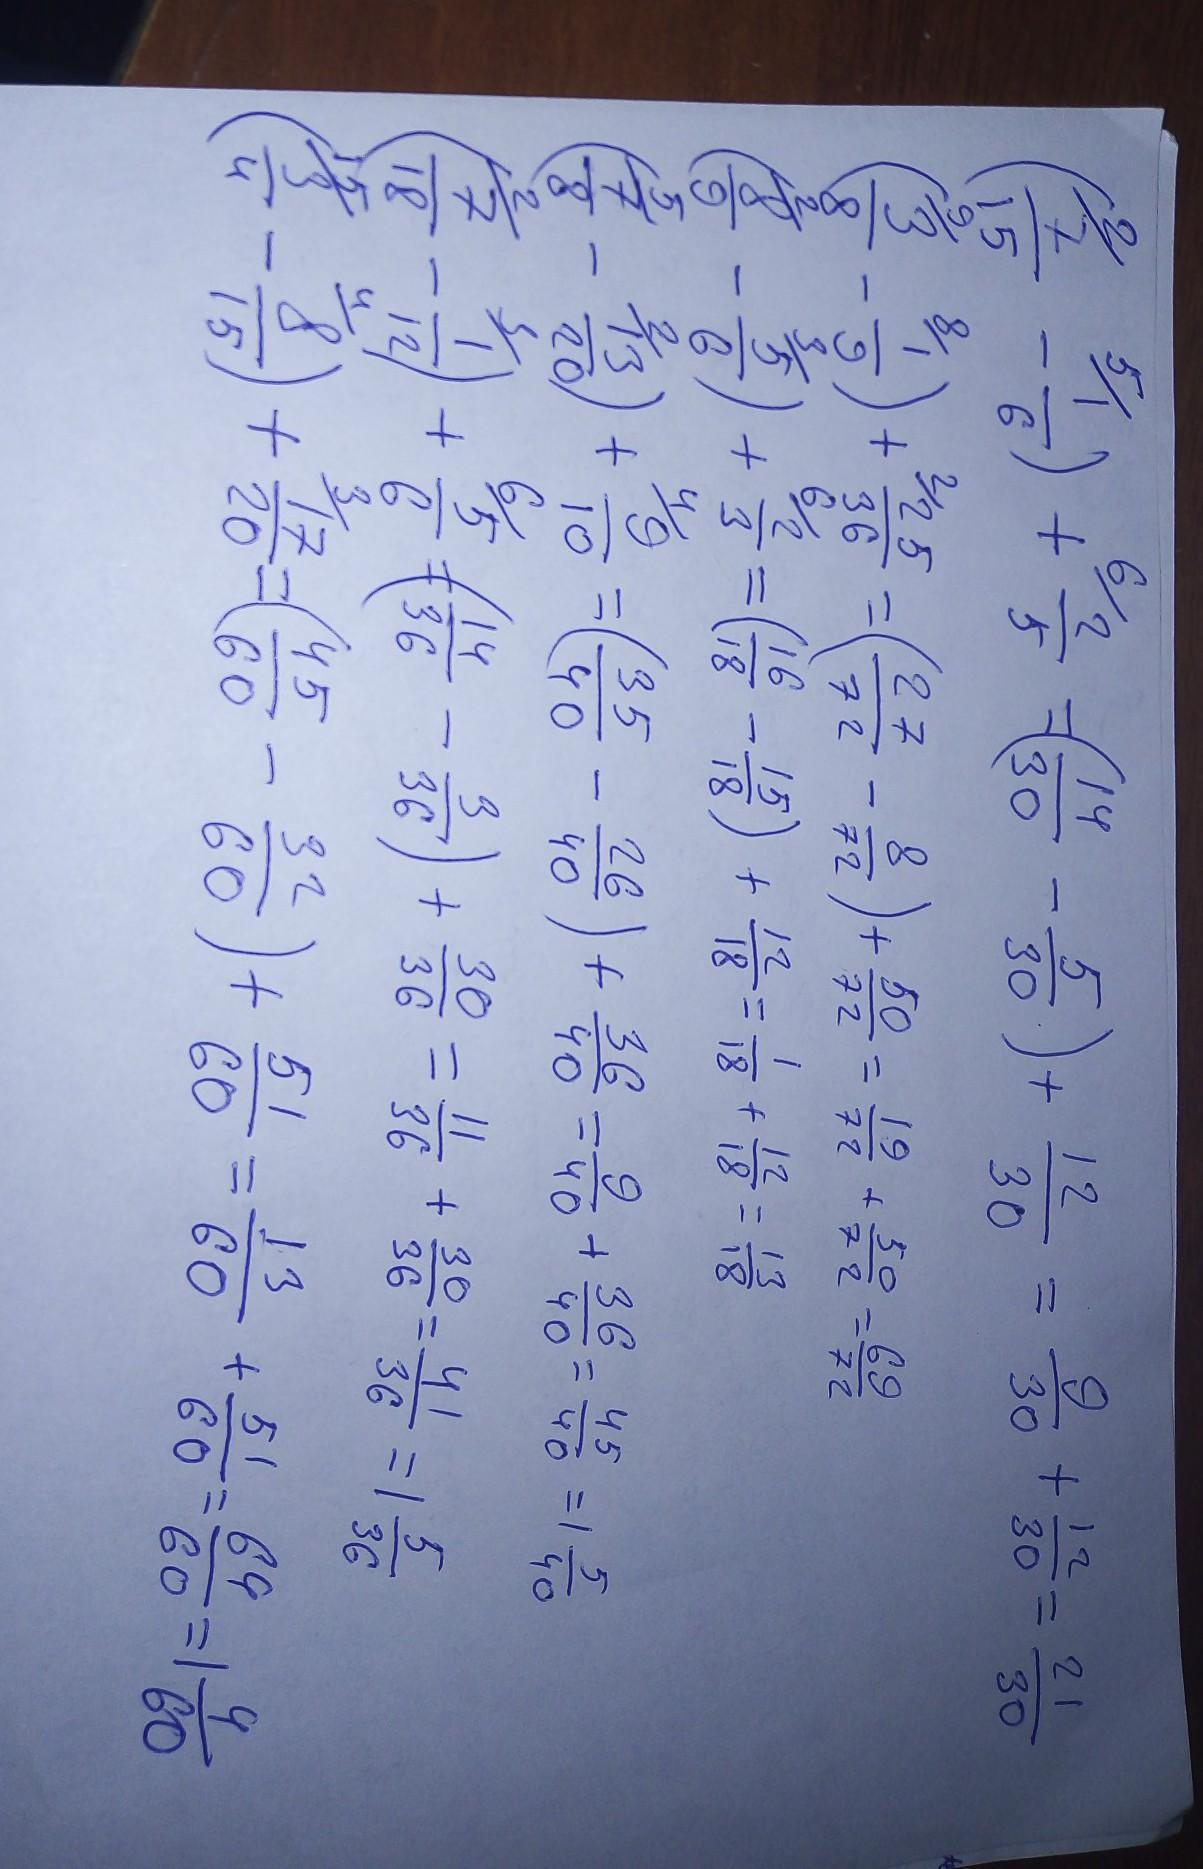 (7/15 2/ - 1/6 5/) + 2/5 6/ = (14/30 - 5/30) + 12/30 = 9/30 + 12/30 = 21/30
(3/8 9/ - 1/9 8/) + 25/36 2/ = (27/72 - 8/72) + 50/72 = 19/72 + 50/72 = 69/72
(8/9 2/ - 5/6 3/) + 2/3 6/ = (16/18 - 15/18) + 12/18 = 1/18 + 12/18 = 13/18
(7/8 5/ - 13/20 2/) + 9/10 4/ = (35/40 - 26/40) + 36/40 = 9/40 + 36/40 = 45/40 = 1 5/40
(7/18 2/ - 1/12 3/) + 5/6 6/ = (14/36 - 3/36) + 30/36 = 11/36 + 30/36 = 41/36 = 1 5/36
(3/4 15/ - 8/15 4/) + 17/20 3/ = (45/60 - 32/60) + 51/60 = 13/60 + 51/60 = 64/60 = 1 4/60